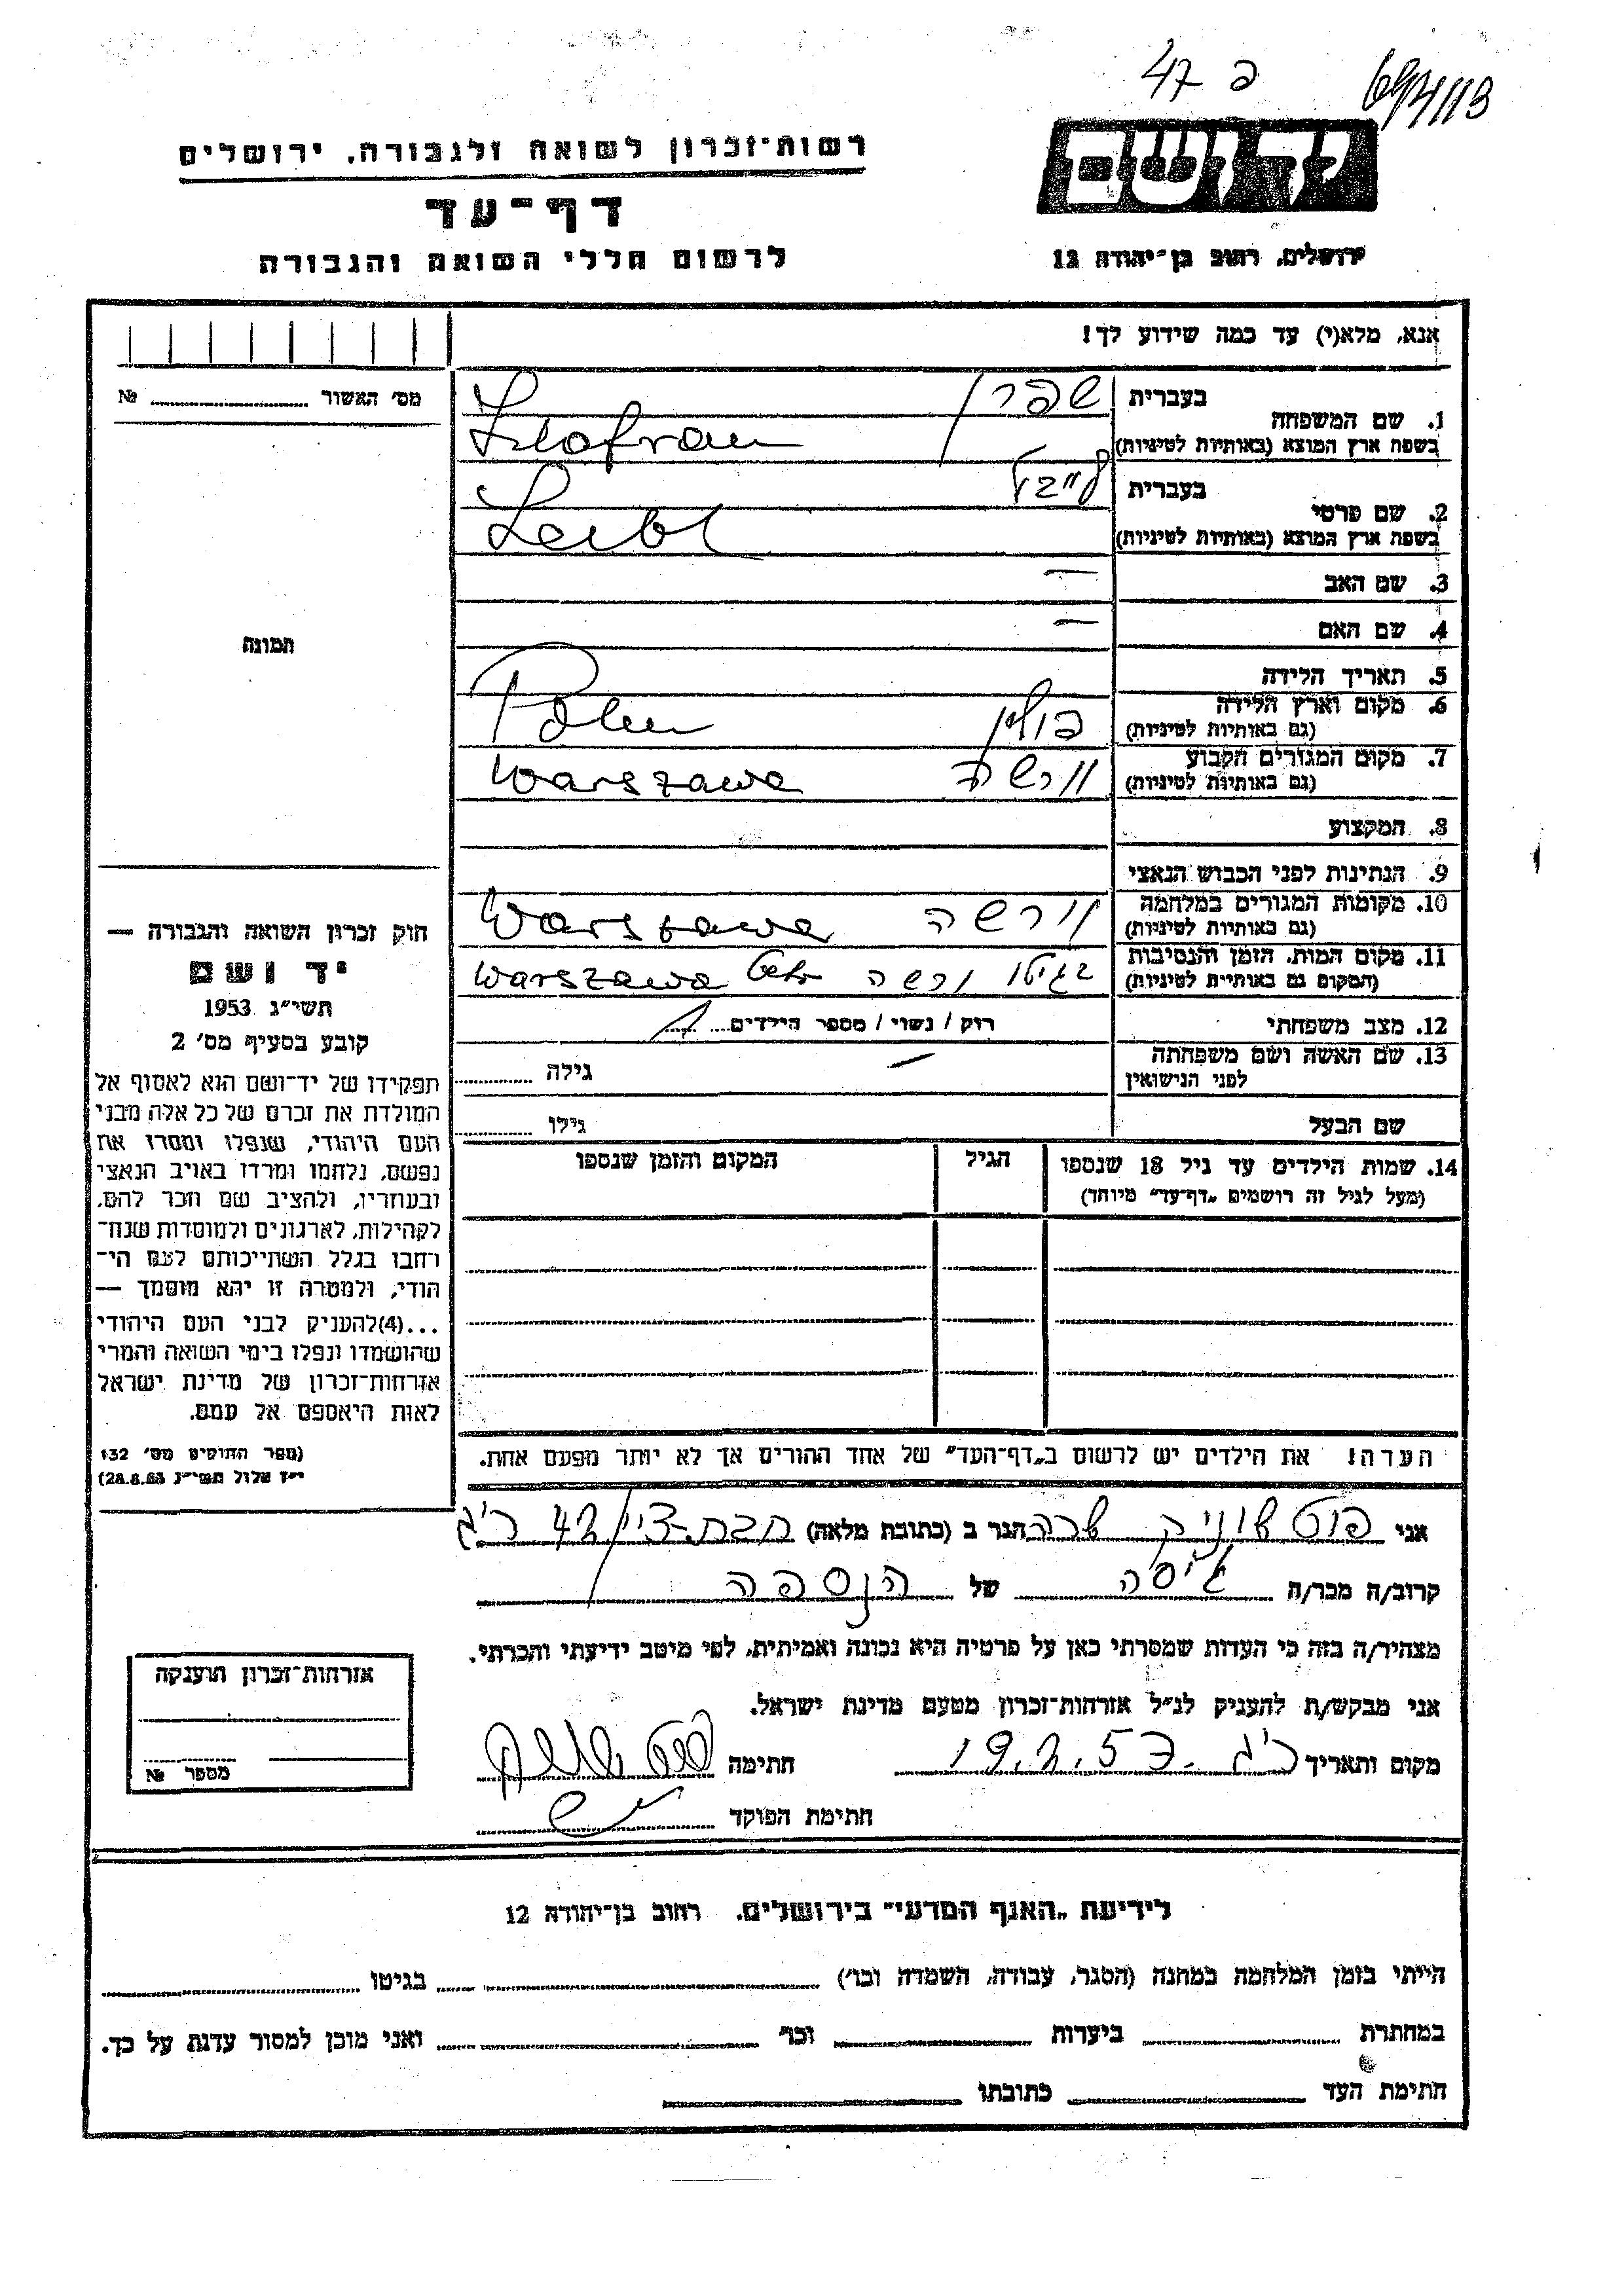 פ 47
יד ושם
רשות־זכרון לשואה ולגבורה, ירושלים
דף־עד
לרשום חללי השואה והגבורה
ירושלים, רחוב בן־יהודה 12
אנא, מלא(י) עד כמה שידוע לך!
מס׳ האשור № 
1. שם המשפחה
בעברית שפרן
בשפת ארץ המוצא (באותיות לטיניות) Szafran
2. שם פרטי
בעברית לייבל
בשפת ארץ המוצא (באותיות לטיניות) Leibl
3. שם האב —
4. שם האם —
תמונה
5. תאריך הלידה
6. מקום וארץ הלידה
(גם באותיות לטיניות) פולין Polen
7. מקום המגורים הקבוע
(גם באותיות לטיניות) וורשה Warszawa
8. המקצוע
9. הנתינות לפני הכבוש הנאצי
10. מקומות המגורים במלחמה
(גם באותיות לטיניות) וורשה Warszawa
11. מקום המות, הזמן והנסיבות
(המקום גם באותיות לטיניות) בגיטו ורשה Warszawa
12. מצב משפחתי רוק / נשוי / מספר הילדים
13. שם האשה ושם משפחתה
לפני הנישואין — גילה
שם הבעל גילו
14. שמות הילדים עד גיל 18 שנספו הגיל המקום והזמן שנספו
(מעל לגיל זה רושמים „דף־עד״ מיוחד)
הערה! את הילדים יש לרשום ב„דף־העד״ של אחד ההורים אך לא יותר מפעם אחת.
חוק זכרון השואה והגבורה —
יד ושם
תשי״ג 1953
קובע בסעיף מס׳ 2
תפקידו של יד־ושם הוא לאסוף אל
המולדת את זכרם של כל אלה מבני
העם היהודי, שנפלו ומסרו את
נפשם, נלחמו ומרדו באויב הנאצי
ובעוזריו, ולהציב שם וזכר להם,
לקהילות, לארגונים ולמוסדות שנח־
רבו בגלל השתייכותם לעם הי־
הודי, ולמטרה זו יהא מוסמך —
...(4)להעניק לבני העם היהודי
שהושמדו ונפלו בימי השואה והמרי
אזרחות־זכרון של מדינת ישראל
לאות היאספם אל עמם.
(ספר החוקים מס׳ 132
י״ז אלול תשי״ג 28.8.53)
אני שרה הגר ב (כתובת מלאה) 42 ר״ג
קרוב/ה מכר/ה גיסה של הנספה
מצהיר/ה בזה כי העדות שמסרתי כאן על פרטיה היא נכונה ואמיתית, לפי מיטב ידיעתי והכרתי.
אני מבקש/ת להעניק לנ״ל אזרחות־זכרון מטעם מדינת ישראל.
מקום ותאריך ר״ג 19.2.57 חתימה
חתימת הפוקד
אזרחות־זכרון הוענקה
מספר №
לידיעת „האגף המדעי״ בירושלים, רחוב בן־יהודה 12
הייתי בזמן המלחמה במחנה (הסגר, עבודה, השמדה וכו׳) בגיטו
במחתרת ביערות וכו׳ ואני מוכן למסור עדות על כך.
חתימת העד כתובתו